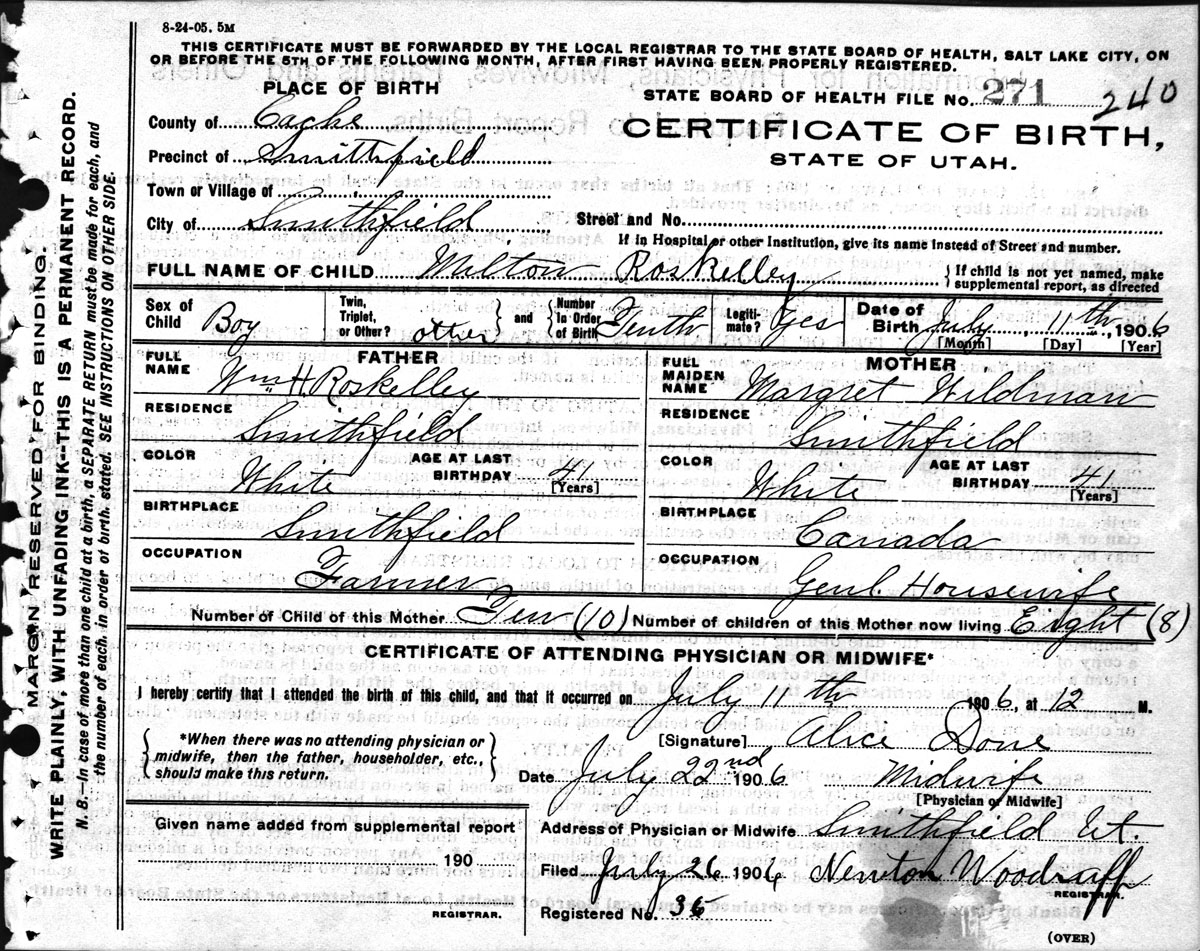 8-24-05. 5M
THIS CERTIFICATE MUST BE FORWARDED BY THE LOCAL REGISTRAR TO THE STATE BOARD OF HEALTH, SALT LAKE CITY, ON
OR BEFORE THE 5TH OF THE FOLLOWING MONTH, AFTER FIRST HAVING BEEN PROPERLY REGISTERED.
PLACE OF BIRTH
STATE BOARD OF HEALTH FILE No. 271 240
County of Cache
CERTIFICATE OF BIRTH,
Precinct of Smithfield
STATE OF UTAH.
Town or Village of
City of Smithfield Street and No.
If in Hospital or other Institution, give its name instead of Street and number.
FULL NAME OF CHILD Milton Roskelley { If child is not yet named, make
supplemental report, as directed
Sex of Child Boy Twin, Triplet, or Other? other and Number in Order of Birth Tenth Legiti-mate? Yes Date of Birth July 11th, 1906
[Month] [Day] [Year]
FATHER MOTHER
FULL NAME Wm H. Roskelley FULL MAIDEN NAME Margret Wildman
RESIDENCE Smithfield RESIDENCE Smithfield
COLOR White AGE AT LAST BIRTHDAY 41 [Years] COLOR White AGE AT LAST BIRTHDAY 41 [Years]
BIRTHPLACE Smithfield BIRTHPLACE Canada
OCCUPATION Farmer OCCUPATION Genl. Housewife
Number of Child of this Mother Ten (10) Number of children of this Mother now living Eight (8)
CERTIFICATE OF ATTENDING PHYSICIAN OR MIDWIFE*
I hereby certify that I attended the birth of this child, and that it occurred on July 11th 1906, at 12 M.
*When there was no attending physician or
midwife, then the father, householder, etc.,
should make this return.
[Signature] Alice Done
Date July 22nd 1906 Midwife
[Physician or Midwife]
Given name added from supplemental report
Address of Physician or Midwife Smithfield Ut.
190
Filed July 26 1906 Newton Woodruff
REGISTRAR.
REGISTRAR.
Registered No. 35
(OVER)
MARGIN RESERVED FOR BINDING.
WRITE PLAINLY, WITH UNFADING INK--THIS IS A PERMANENT RECORD.
N. B.--In case of more than one child at a birth, a SEPARATE RETURN must be made for each, and
the number of each, in order of birth, stated. SEE INSTRUCTIONS ON OTHER SIDE.